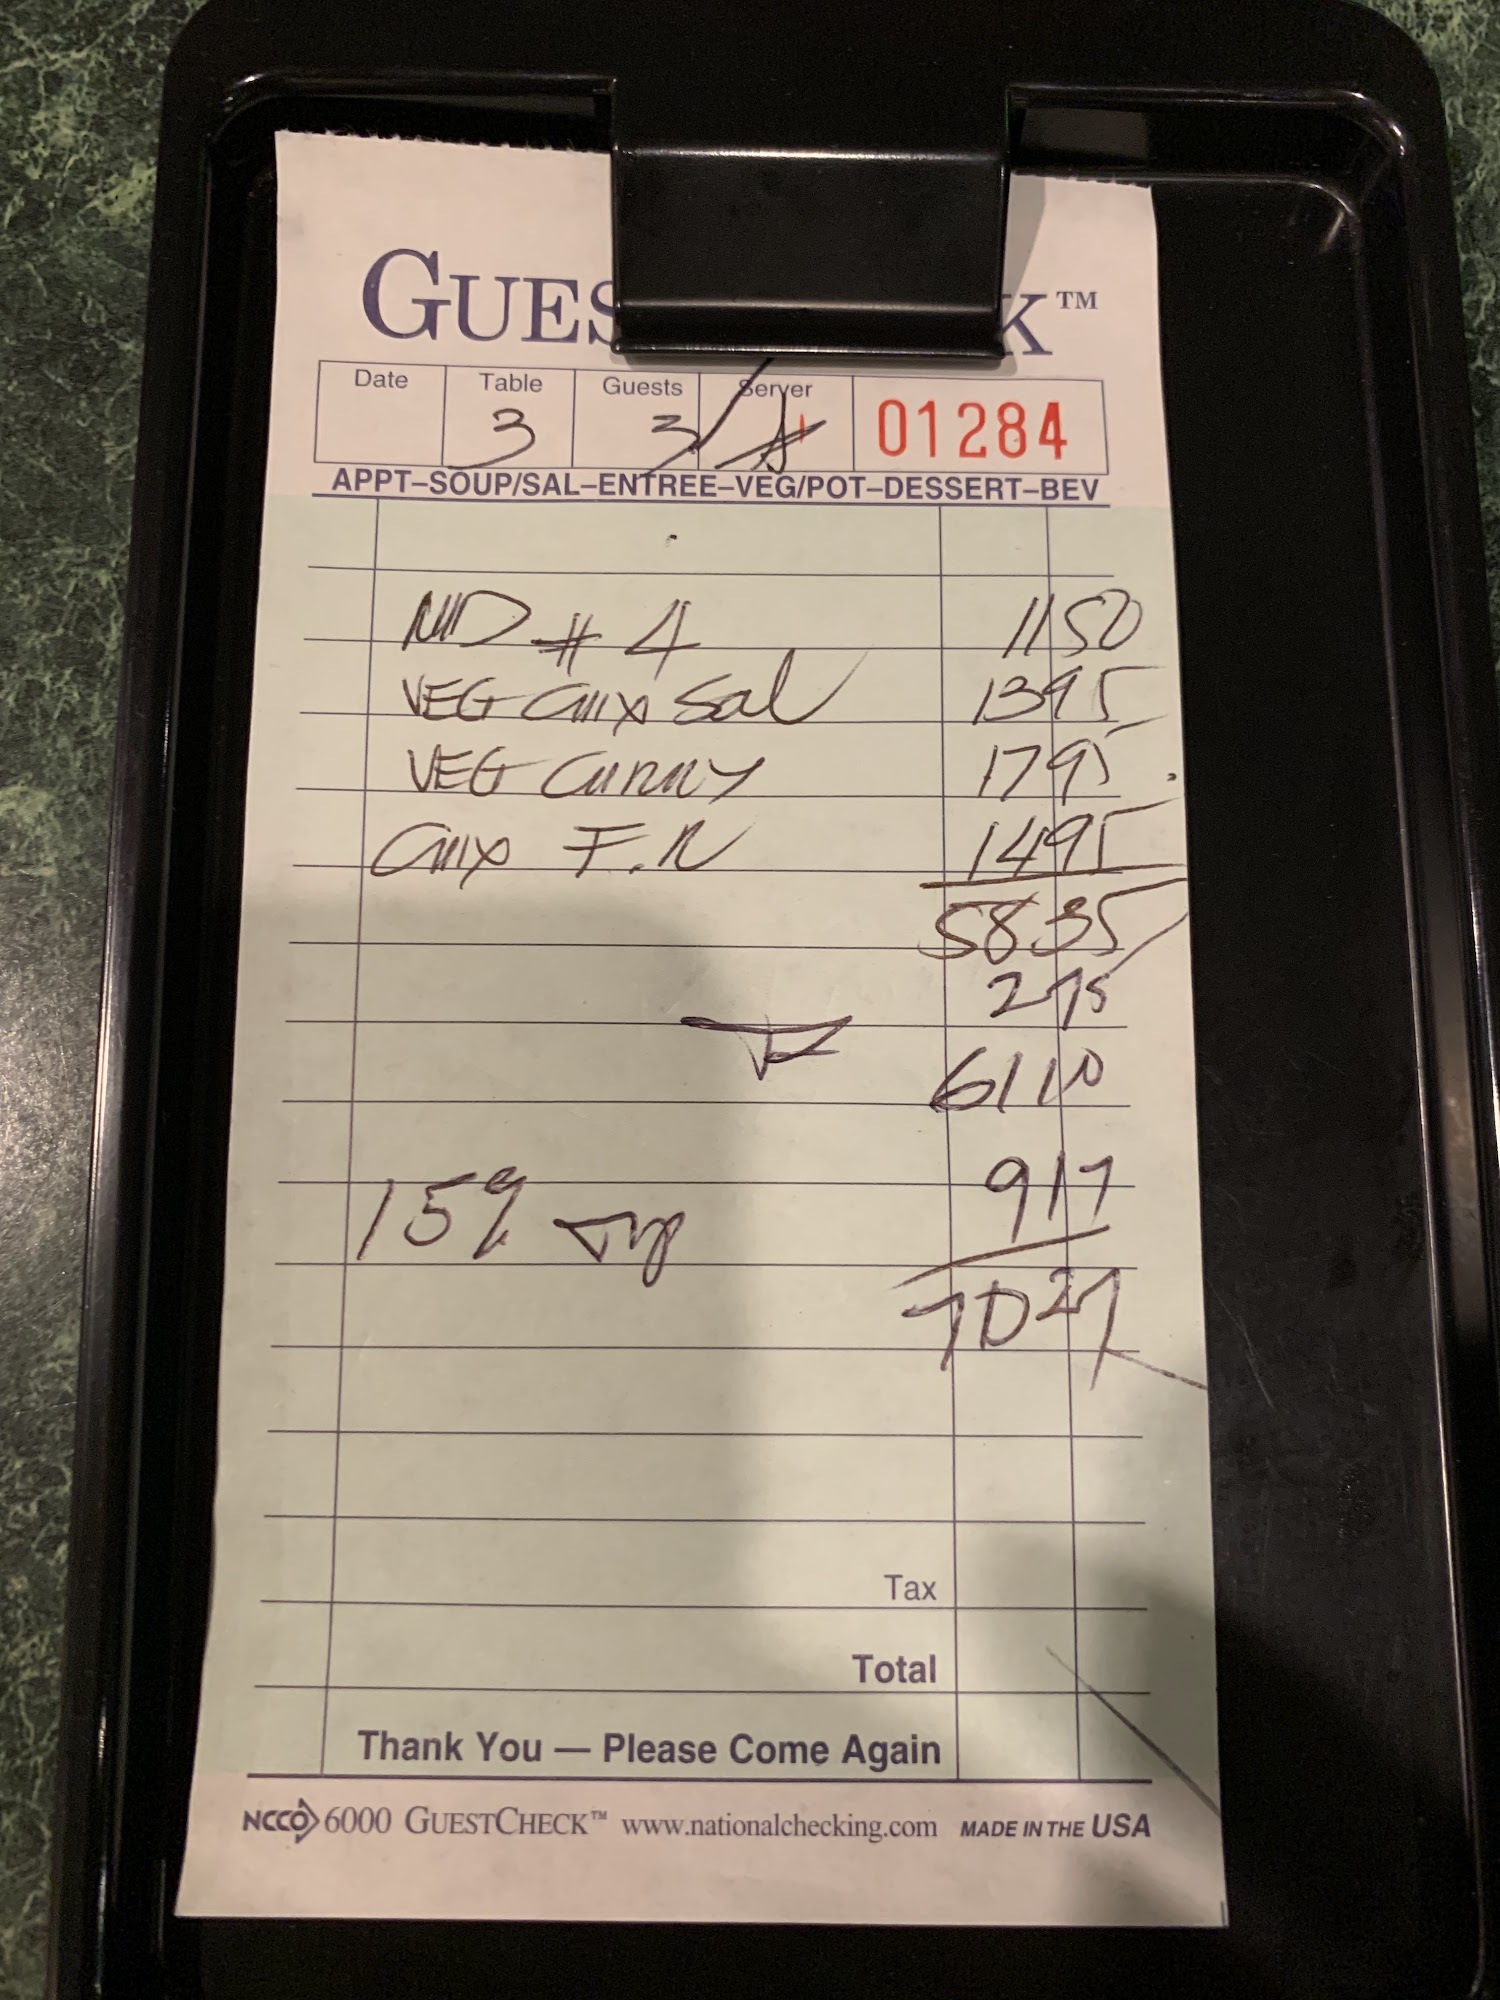 GUES K™
Date Table Guests Server
3 3 01284
APPT–SOUP/SAL–ENTREE–VEG/POT–DESSERT–BEV
# 4 1150
VEG Sal 1395
VEG Curry 1795
F.R 1495
5835
275
6110
15% 917
7027
Tax
Total
Thank You — Please Come Again
NCCO 6000 GUESTCHECK™ www.nationalchecking.com MADE IN THE USA